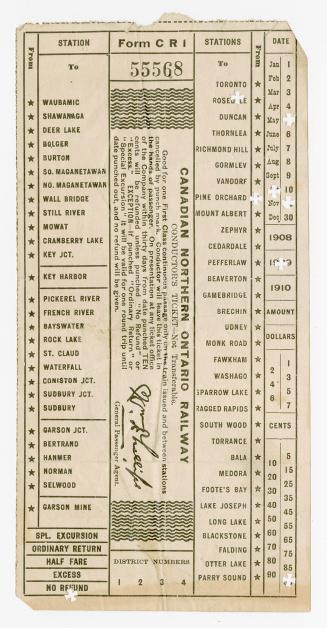 STATION
Form C R 1
STATIONS
DATE
From
To
55568
To
From
WAUBAMIC
SHAWANAGA
DEER LAKE
BOLGER
BURTON
SO. MAGANETAWAN
NO. MAGANETAWAN
WALL BRIDGE
STILL RIVER
MOWAT
CRANBERRY LAKE
KEY JCT.
KEY HARBOR
PICKEREL RIVER
FRENCH RIVER
BAYSWATER
ROCK LAKE
ST. CLAUD
WATERFALL
CONISTON JCT.
SUDBURY JCT.
SUDBURY
GARSON JCT.
BERTRAND
HANMER
NORMAN
SELWOOD
GARSON MINE
SPL. EXCURSION
ORDINARY RETURN
HALF FARE
EXCESS
NO REFUND
CANADIAN NORTHERN ONTARIO RAILWAY
CONDUCTOR'S TICKET—Not Transferable.
Good for one First Class continuous passage only on the train issued and between stations
cancelled by punch mark. Conductor will leave this ticket in
the hands of passenger. On presentation at any ticket office
of the Company within thirty days from date punched TEN
cents will be refunded unless punched "No Refund" or
"Excess." EXCEPTION—If punched "Ordinary Return" or
"Special Excursion" it will be valid for one round trip until
date punched out, and no refund will be given.
General Passenger Agent.
DISTRICT NUMBERS
1 2 3 4
TORONTO
ROSEDALE
DUNCAN
THORNLEA
RICHMOND HILL
GORMLEY
VANDORF
PINE ORCHARD
MOUNT ALBERT
ZEPHYR
CEDARDALE
PEFFERLAW
BEAVERTON
GAMEBRIDGE
BRECHIN
UDNEY
MONK ROAD
FAWKHAM
WASHAGO
SPARROW LAKE
RAGGED RAPIDS
SOUTH WOOD
TORRANCE
BALA
MEDORA
FOOTE'S BAY
LAKE JOSEPH
LONG LAKE
BLACKSTONE
FALDING
OTTER LAKE
PARRY SOUND
Jan 1
Feb 2
Mar 3
Apr 4
May
June 6
July 7
Aug 8
Sept 9
10
Nov
Dec 30
1908
1910
AMOUNT
DOLLARS
1
2
3
4
5
6
7
CENTS
5
10
15
20
25
30
35
40
45
50
55
60
65
70
75
80
85
90